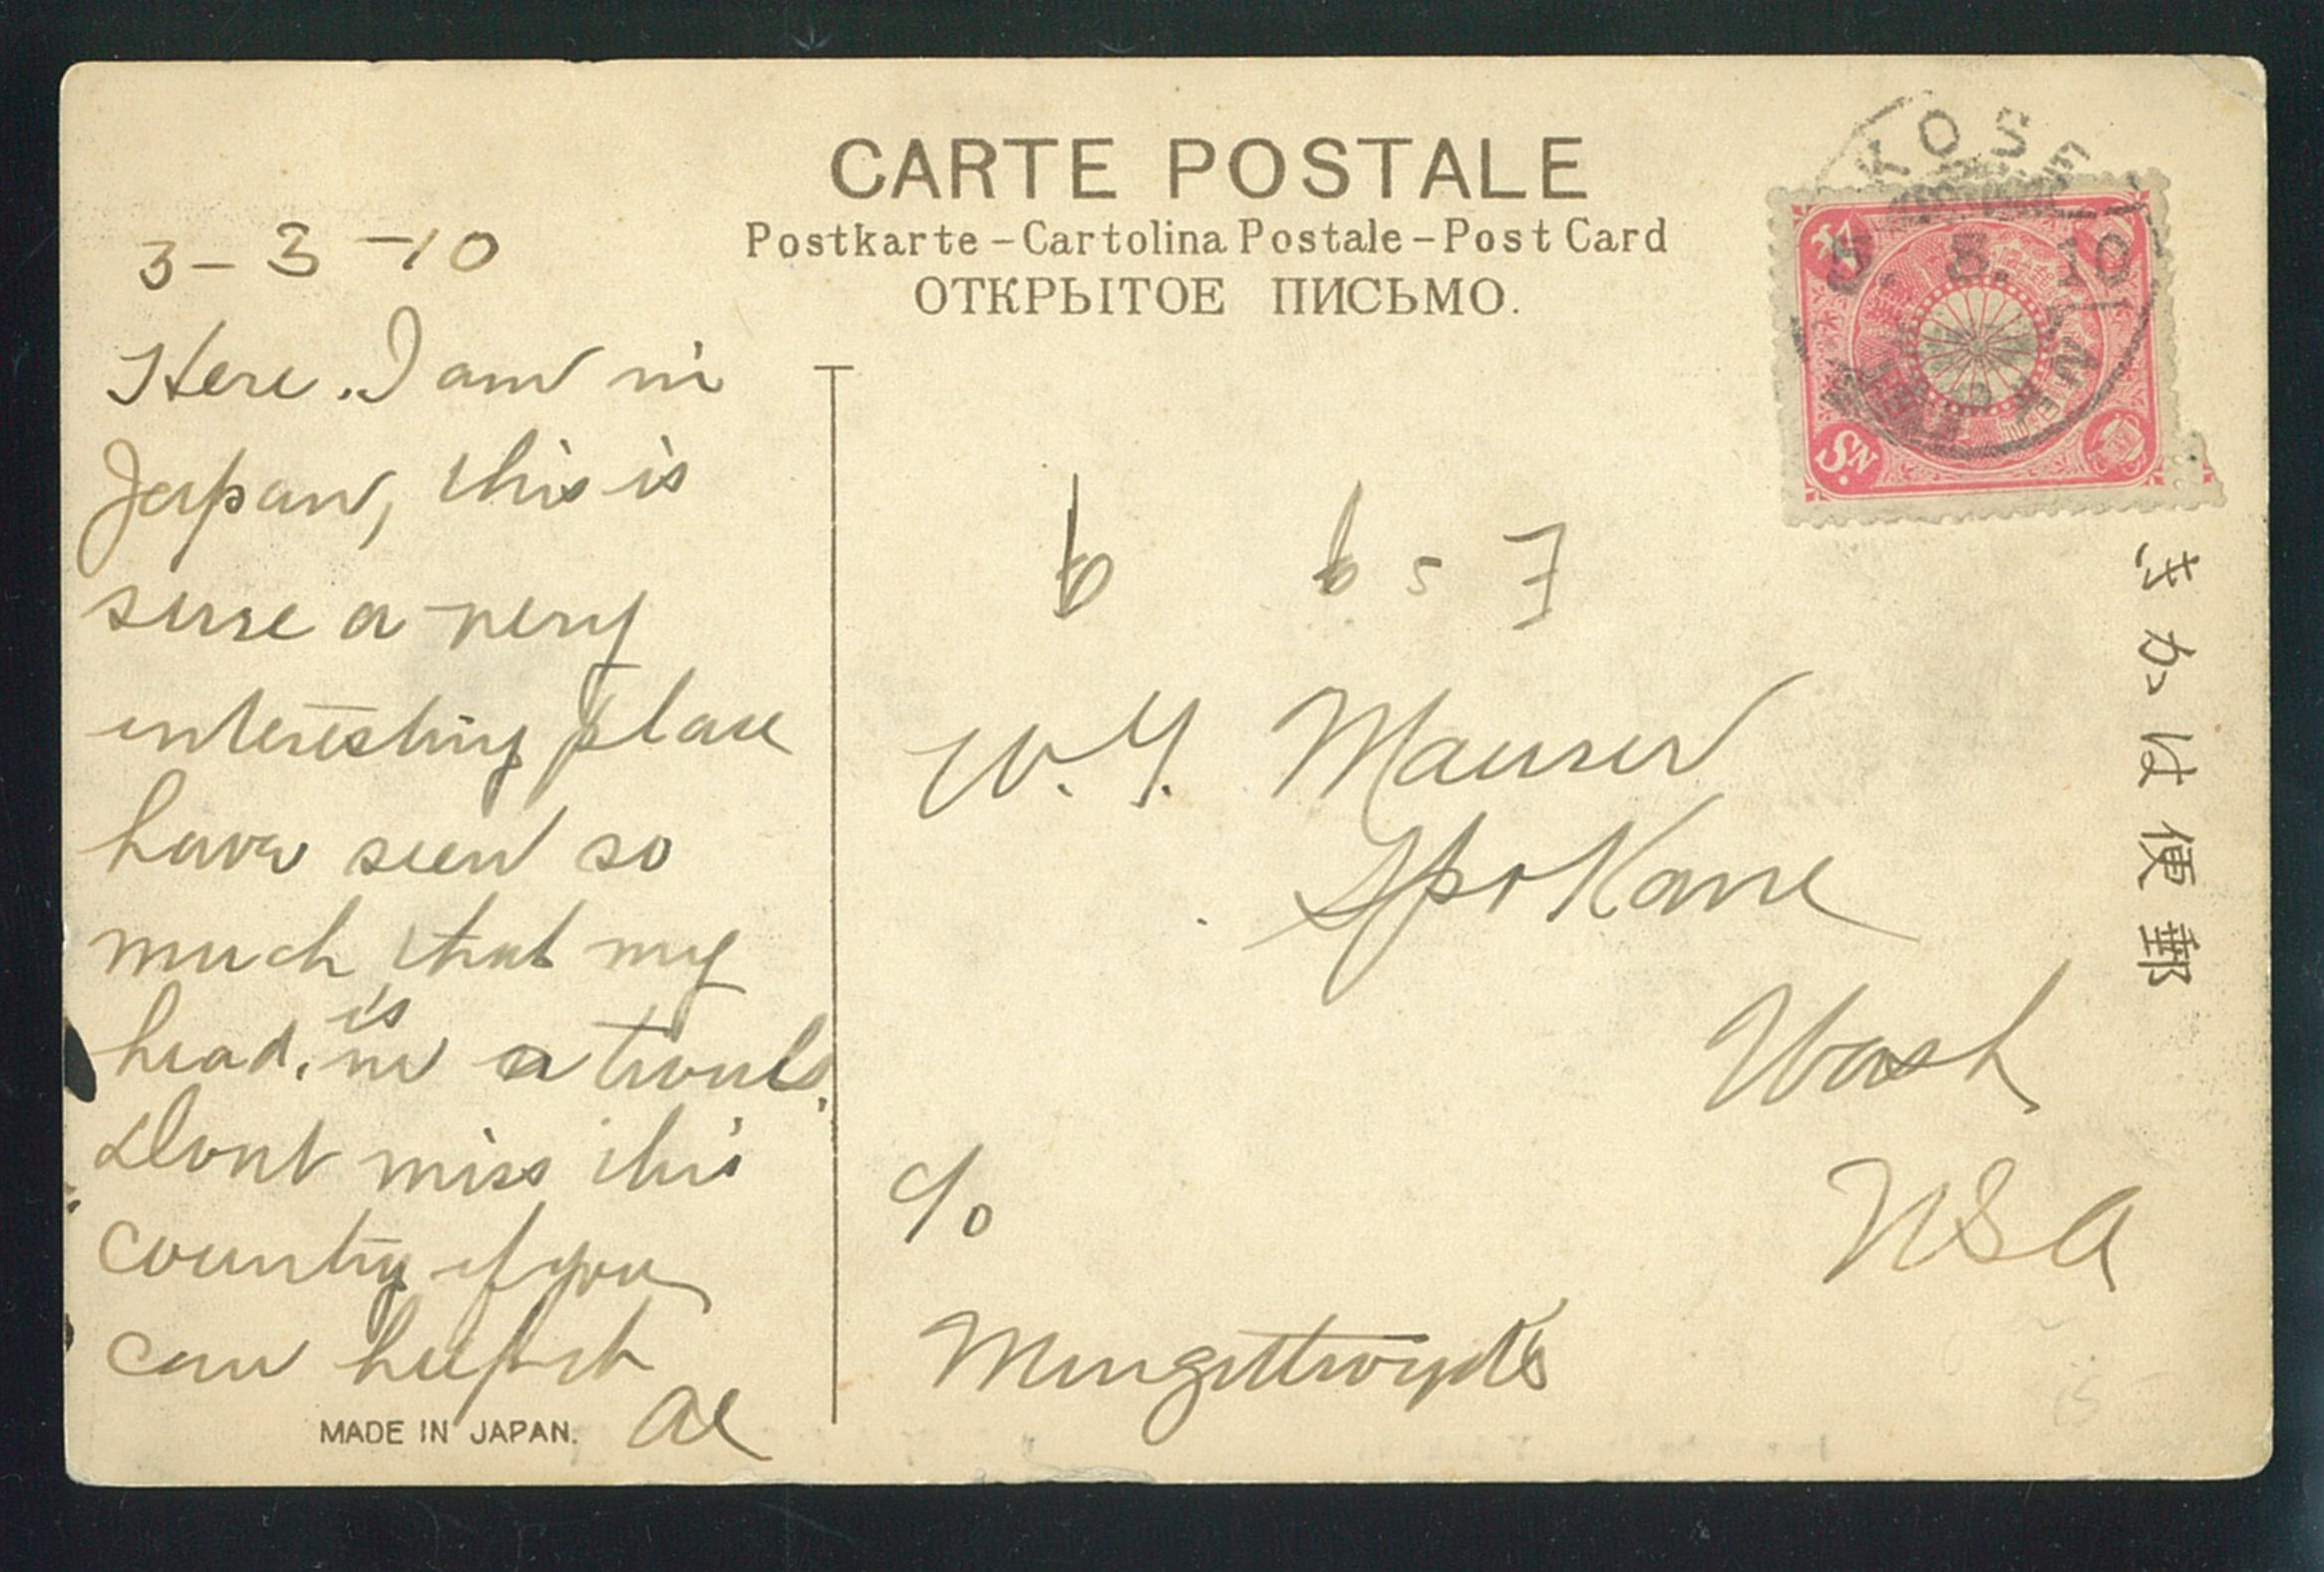 CARTE POSTALE
Postkarte – Cartolina Postale – Post Card
ОТКРЫТОЕ ПИСЬМО.
3 - 3 - 10
Here I am in
Japan, this is
sure a very
interesting place
have seen so
much that my
head. is in a
Dont miss this
country if you
can help it
Al
MADE IN JAPAN.
W. Y. Maurer
Spokane
Wash
USA
c/o
KOBE
3. 3. 10
Sn.
きかは便郵